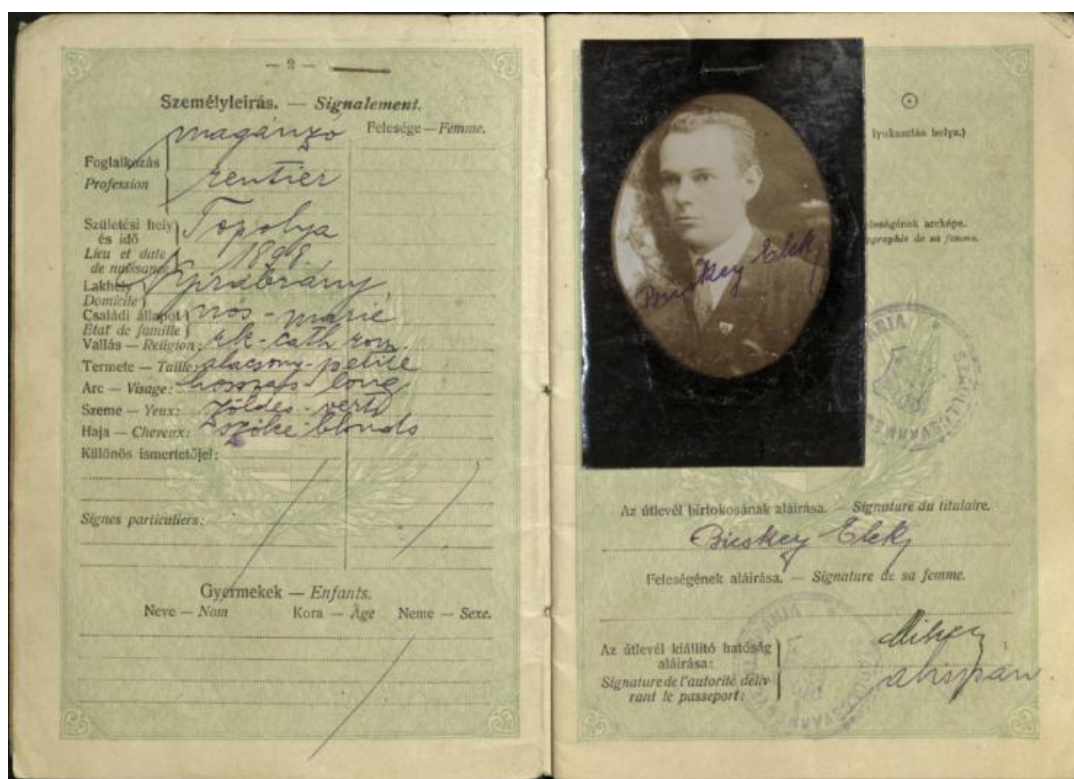 — 2 —
Személyleirás. — Signalement.
Felesége — Femme.
magánzó
Foglalkozás
Profession
rentier
Születési hely
és idő
Lieu et date
de naissance
Topolya
1898.
Lakhely
Domicile
Nyirábrány
Családi állapot
État de famille
nős - marié
Vallás — Religion: rk - cath rom.
Termete — Taille: alacsony - petite
Arc — Visage: hosszas - long
Szeme — Yeux: zöldes - verts
Haja — Cheveux: szőke - blonds
Különös ismertetőjel:
Signes particuliers:
Gyermekek — Enfants.
Neve — Nom Kora — Âge Neme — Sexe.
lyukasztás helye.)
feleségének arcképe.
Bicskey Elek
Az útlevél birtokosának aláirása. — Signature du titulaire.
Bicskey Elek
Feleségének aláirása. — Signature de sa femme.
Az útlevél kiállitó hatóság
aláirása:
Signature de l'autorité déliv
rant le passeport:
alispán